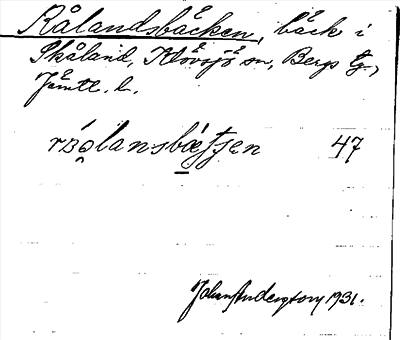 Rålandsbäcken, bäck i
Skåland, Klövsjö sn, Bergs tg,
Jämtl. l.
47
Johan Anderson 1931.